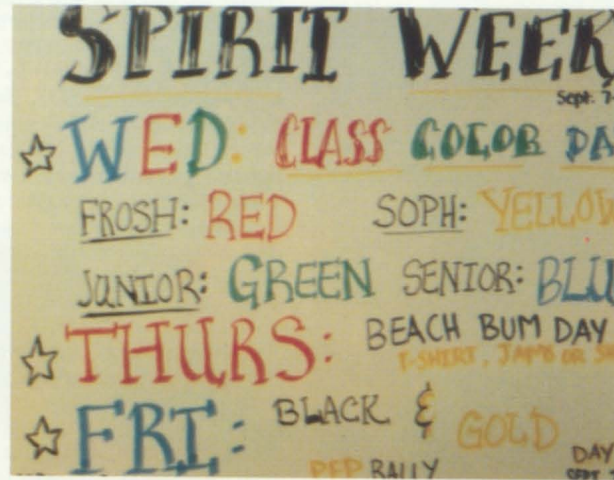 SPIRIT WEEK
Sept. 7-
WED: CLASS COLOR DA
FROSH: RED SOPH: YELLOW
JUNIOR: GREEN SENIOR: BLU
THURS: BEACH BUM DAY
T-SHIRT, JAMS OR
FRI: BLACK & GOLD
DAY
PEP RALLY SEPT.